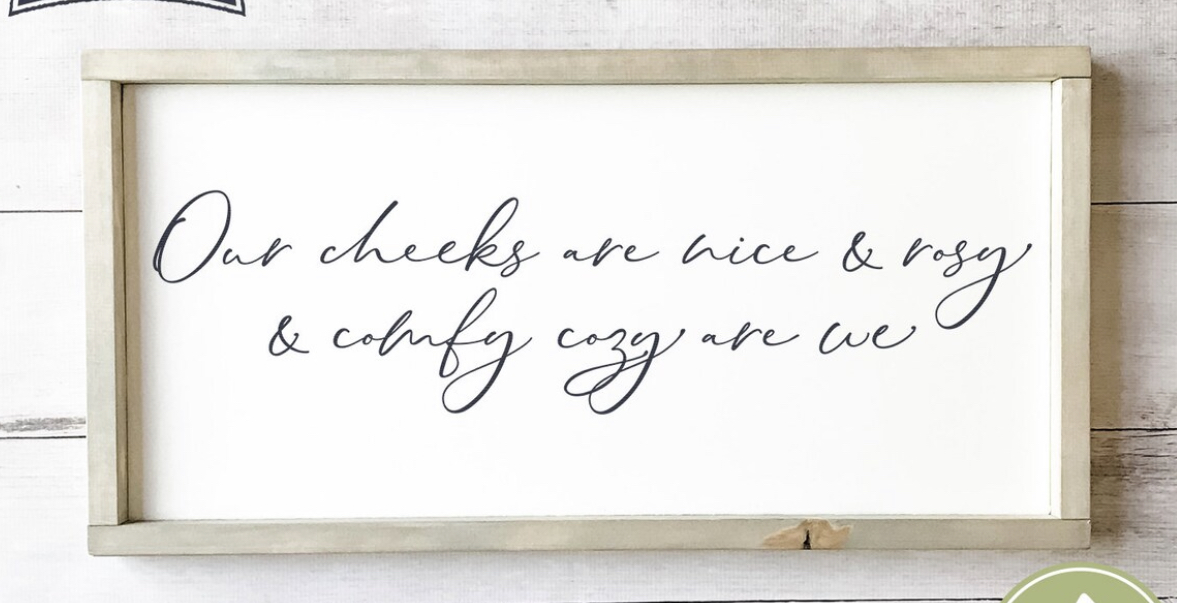 Our cheeks are nice & rosy
& comfy cozy are we